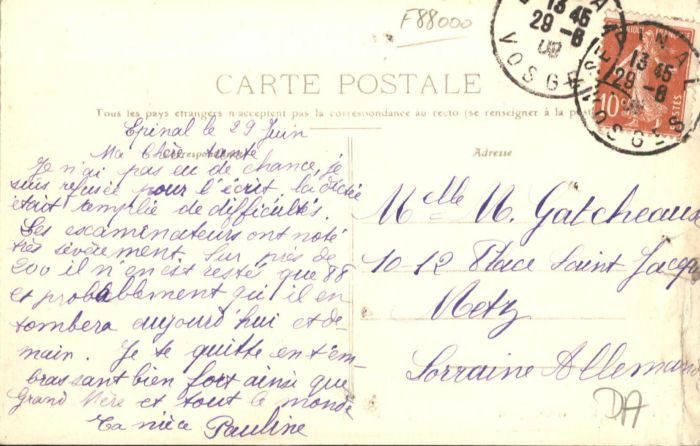 F88000
EPINAL
13 45
29-6
09
VOSGES
EPINAL
13 45
29-6
VOSGES
10
POSTES
CARTE POSTALE
Tous les pays étrangers n'acceptent pas la correspondance au recto (se renseigner à la poste)
Correspondance
Adresse
Epinal le 29 Juin
Ma chère tante
Je n'ai pas eu de chance, je
suis refusée pour l'écrit, la dictée
était remplie de difficultés.
Les escaminateurs ont noté
très sévèrement. Sur près de
200 il n'en est restés que 88
et probablement qu'il en
tombera aujourd'hui et de-
main. Je te quitte en t'em-
brassant bien fort ainsi que
Grand'Mère et tout le monde
Ta nièce Pauline
Melle M. Gatcheaux
10-12 Place Saint Jacq
Metz
Lorraine Alleman
DA